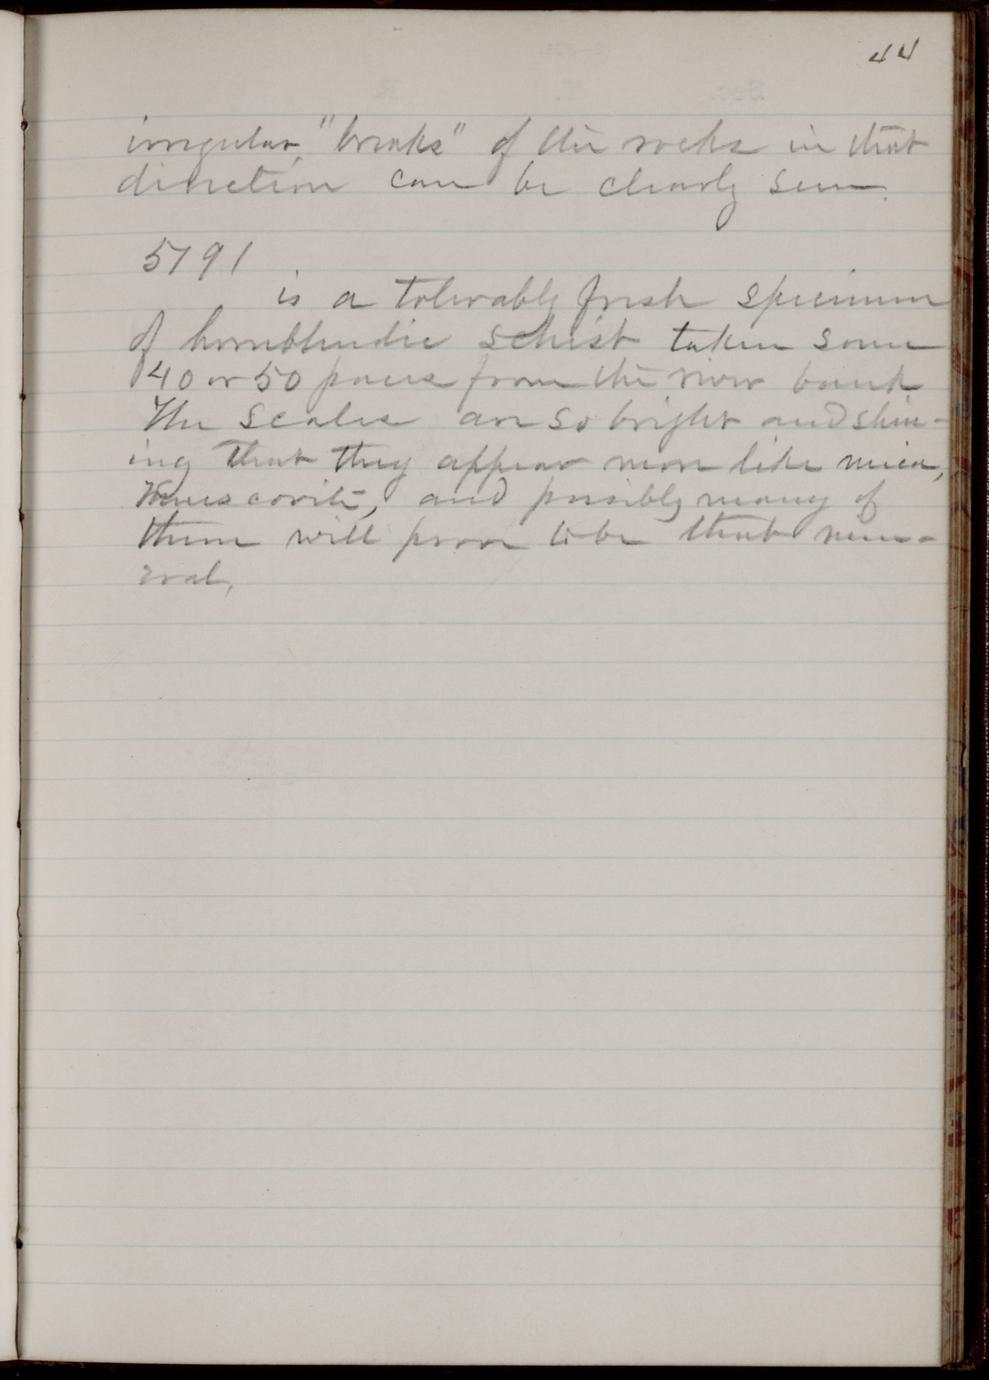 44
irregular "breaks" of the rocks in that
direction can be clearly seen.
5791
is a tolerably fresh specimen
of hornblendic schist taken some
40 or 50 paces from the river bank
The scales are so bright and shin-
ing that they appear more like mica,
muscovite, and possibly many of
them will prove to be that min-
eral,